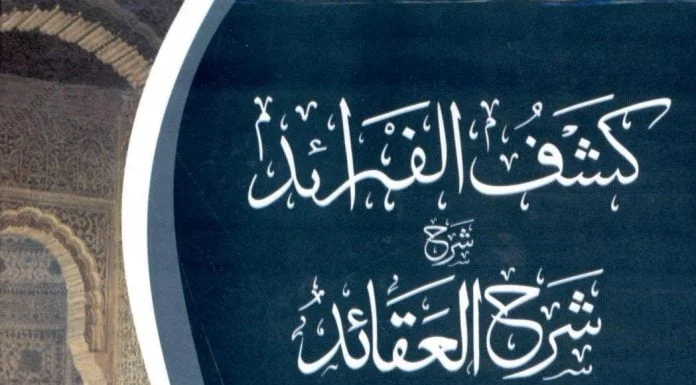 كشف الفرائد
شرح
شرح العقائد